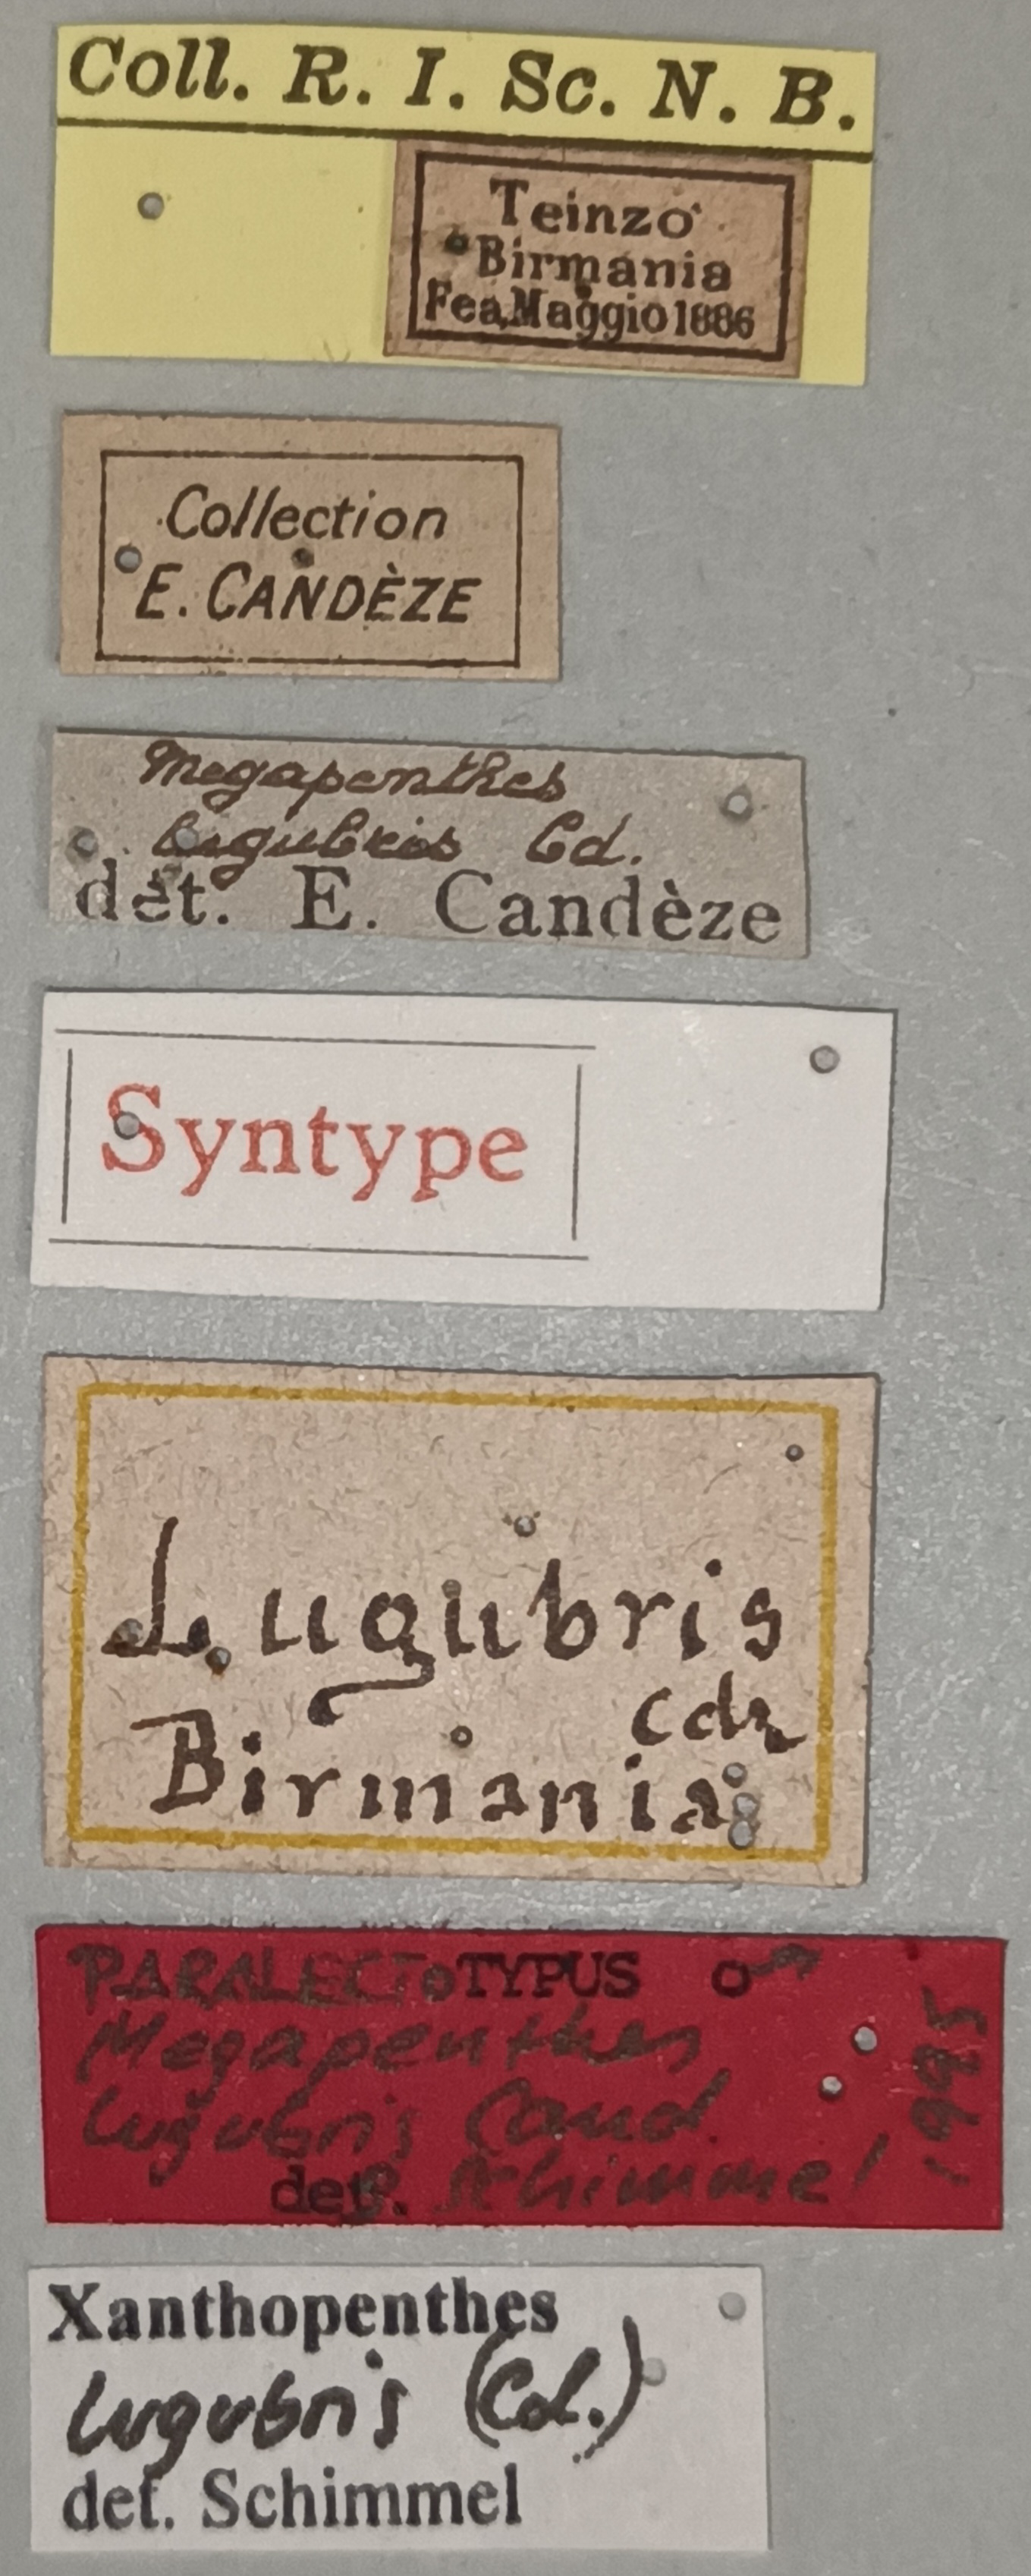 Coll. R. I. Sc. N. B.
Teinzò
Birmania
Fea, Maggio 1886
Collection
E. CANDÈZE
Megapenthes
lugubris Cd.
det. E. Candèze
Syntype
Lugubris
cdz
Birmania
PARALECTOTYPUS ♂
Megapenthes
lugubris Cand.
det. Schimmel 1995
Xanthopenthes
lugubris (Cd.)
det. Schimmel